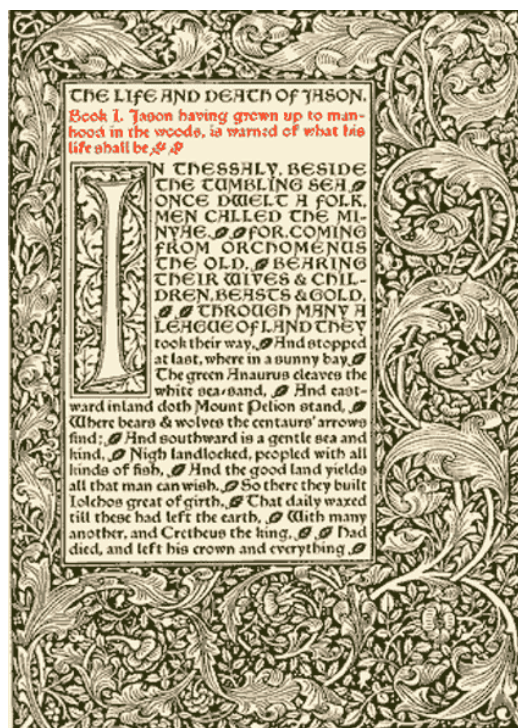 THE LIFE AND DEATH OF JASON.
Book I. Jason having grown up to man-
hood in the woods, is warned of what his
life shall be.
IN THESSALY, BESIDE
THE TUMBLING SEA,
ONCE DWELT A FOLK,
MEN CALLED THE MI-
NYAE, FOR, COMING
FROM ORCHOMENUS
THE OLD, BEARING
THEIR WIVES & CHIL-
DREN, BEASTS & GOLD,
THROUGH MANY A
LEAGUE OF LAND THEY
took their way, And stopped
at last, where in a sunny bay
The green Anaurus cleaves the
white sea-sand, And east-
ward inland doth Mount Pelion stand,
Where bears & wolves the centaurs' arrows
find; And southward is a gentle sea and
kind, Nigh landlocked, peopled with all
kinds of fish, And the good land yields
all that man can wish. So there they built
Iolchos great of girth, That daily waxed
till these had left the earth, With many
another, and Cretheus the king, Had
died, and left his crown and everything